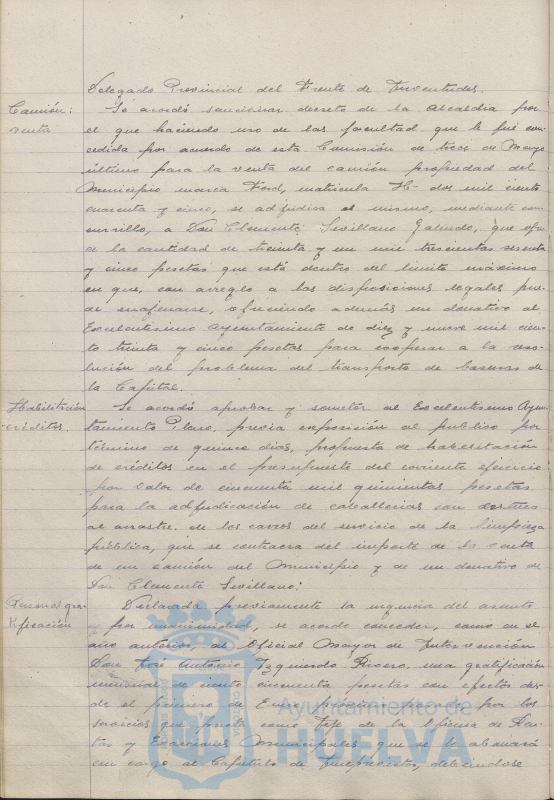 Delegado Provincial del Frente de Juventudes.
Camión: venta
Se acordó sancionar decreto de la Alcaldía por
el que haciendo uso de las facultad que le fué con-
cedida por acuerdo de esta Comisión de trece de Marzo
último para la venta del camión propiedad del
Municipio marca Ford, matrícula H- dos mil ciento
cuarenta y cinco, se adjudica el mismo, mediante con-
cursillo, a Don Clemente Sevillano Galindo, que ofre-
ce la cantidad de treinta y un mil trescientas sesenta
y cinco pesetas que está dentro del límite máximo
en que, con arreglo a las disposiciones legales pue-
de enajenarse, ofreciendo además un donativo al
Excelentísimo Ayuntamiento de diez y nueve mil cien-
to treinta y cinco pesetas para cooperar a la reso-
lución del problema del transporte de basuras de
la Capital.
Habilitación créditos.
Se acordó aprobar y someter al Excelentísimo Ayun-
tamiento Pleno, previa exposición al público por
término de quince días, propuesta de habilitación
de créditos en el presupuesto del corriente ejercicio
por valor de cincuenta mil quinientas pesetas
para la adjudicación de caballerías con destino
al arrastre de los carros del servicio de la limpieza
pública, que se contraera del importe de la venta
de un camión del Municipio y de un donativo de
Don Clemente Sevillano.
gra-
tificación
Declarada previamente la urgencia del asunto
y por unanimidad, se acordó conceder, como en el
año anterior, al Oficial Mayor de Intervención
Don José Antonio Izquierdo Rivero, una gratificación
mensual de ciento cincuenta pesetas con efectos des-
de el primero de Enero próximo pasado por los
servicios que presta como Jefe de la Oficina de Ren-
tas y Exacciones Municipales que se le abonará
con cargo al Capítulo de Imprevistos, debiéndose
Ayuntamiento de
HUELVA